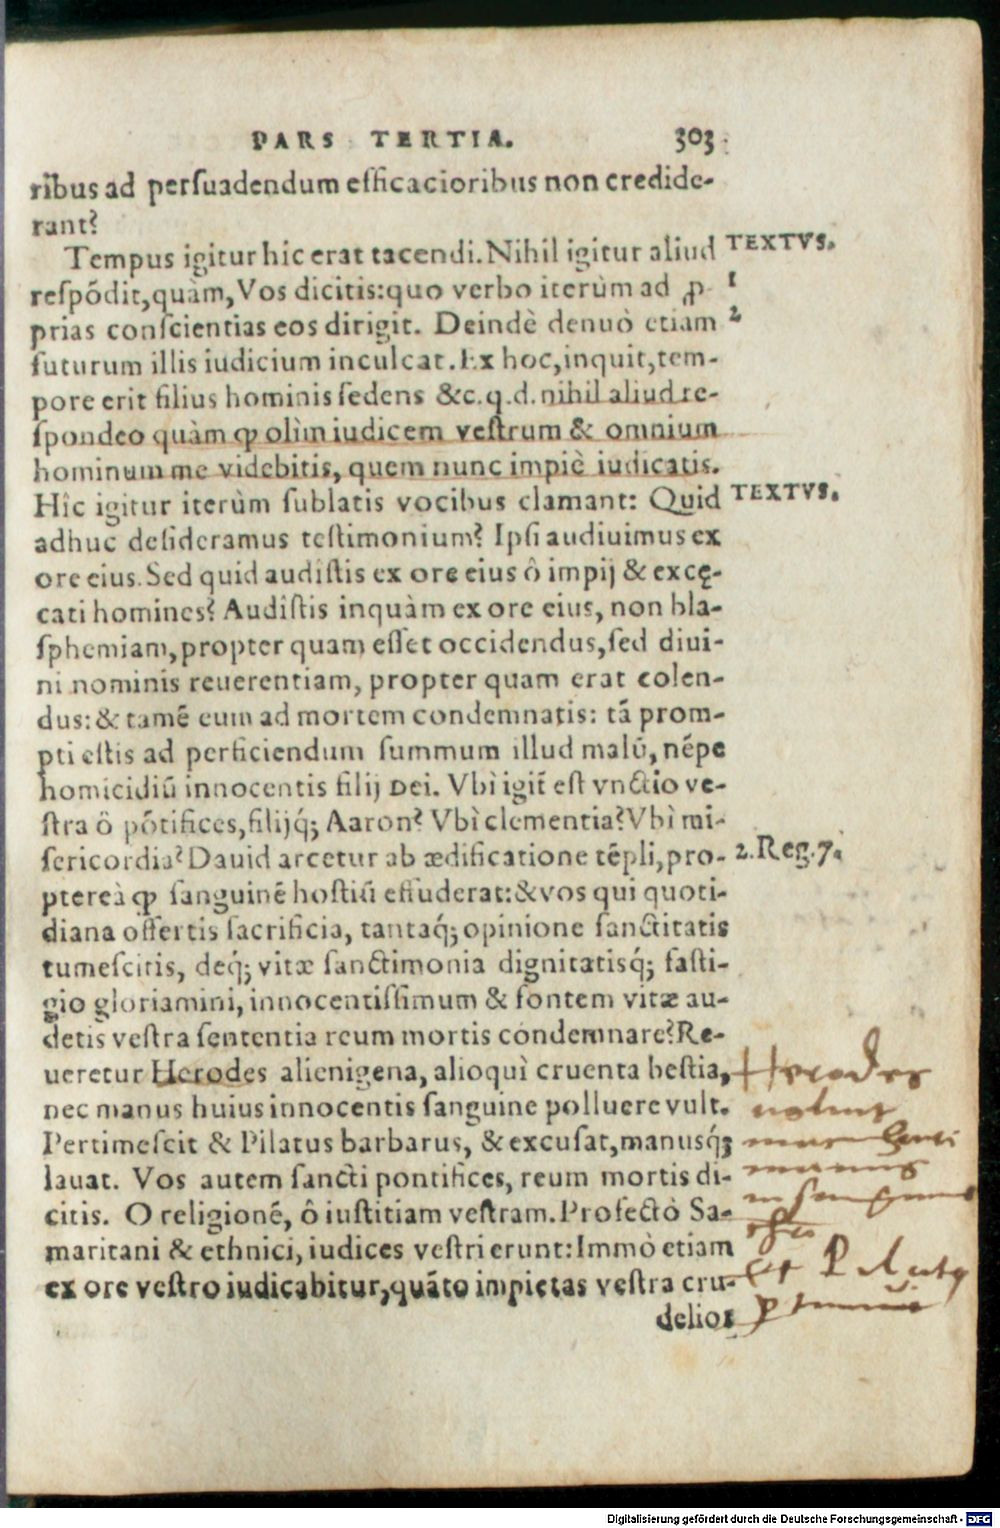 PARS TERTIA. 303
ribus ad persuadendum efficacioribus non credide-
rant?
Tempus igitur hic erat tacendi. Nihil igitur aliud TEXTVS.
respōdit, quàm, Vos dicitis: quo verbo iterùm ad ꝓ 1
prias conscientias eos dirigit. Deindè denuò etiam 2
futurum illis iudicium inculcat. Ex hoc, inquit, tem-
pore erit filius hominis sedens &c. q. d. nihil aliud re-
spondeo quàm ꝙ olìm iudicem vestrum & omnium
hominum me videbitis, quem nunc impiè iudicatis.
Hîc igitur iterùm sublatis vocibus clamant: Quid TEXTVS.
adhuc desideramus testimonium? Ipsi audiuimus ex
ore eius. Sed quid audistis ex ore eius ô impij & excę-
cati homines? Audistis inquàm ex ore eius, non bla-
sphemiam, propter quam esset occidendus, sed diui-
ni nominis reuerentiam, propter quam erat colen-
dus: & tamē eum ad mortem condemnatis: tā prom-
pti estis ad perficiendum summum illud malū, nēpe
homicidiū innocentis filij DEI. Vbì igit̃ est vnctio ve-
stra ô pōtifices, filijq́; Aaron? Vbì clementia? Vbì mi-
sericordia? Dauid arcetur ab ædificatione tēpli, pro- 2. Reg. 7.
ptereà ꝙ sanguinē hostiū effuderat: & vos qui quoti-
diana offertis sacrificia, tantaq́; opinione sanctitatis
tumescitis, deq́; vitæ sanctimonia dignitatisq́; fasti-
gio gloriamini, innocentissimum & fontem vitæ au-
detis vestra sententia reum mortis condemnare? Re-
ueretur Herodes alienigena, alioquì cruenta bestia, Herodes
nec manus huius innocentis sanguine polluere vult. noluit
Pertimescit & Pilatus barbarus, & excusat, manusq́;
lauat. Vos autem sancti pontifices, reum mortis di- manus
citis. O religionē, ô iustitiam vestram. Profectò Sa- in sanguine
maritani & ethnici, iudices vestri erunt: Immò etiam
ex ore vestro iudicabitur, quāto impietas vestra cru- Et Pilatus
delior